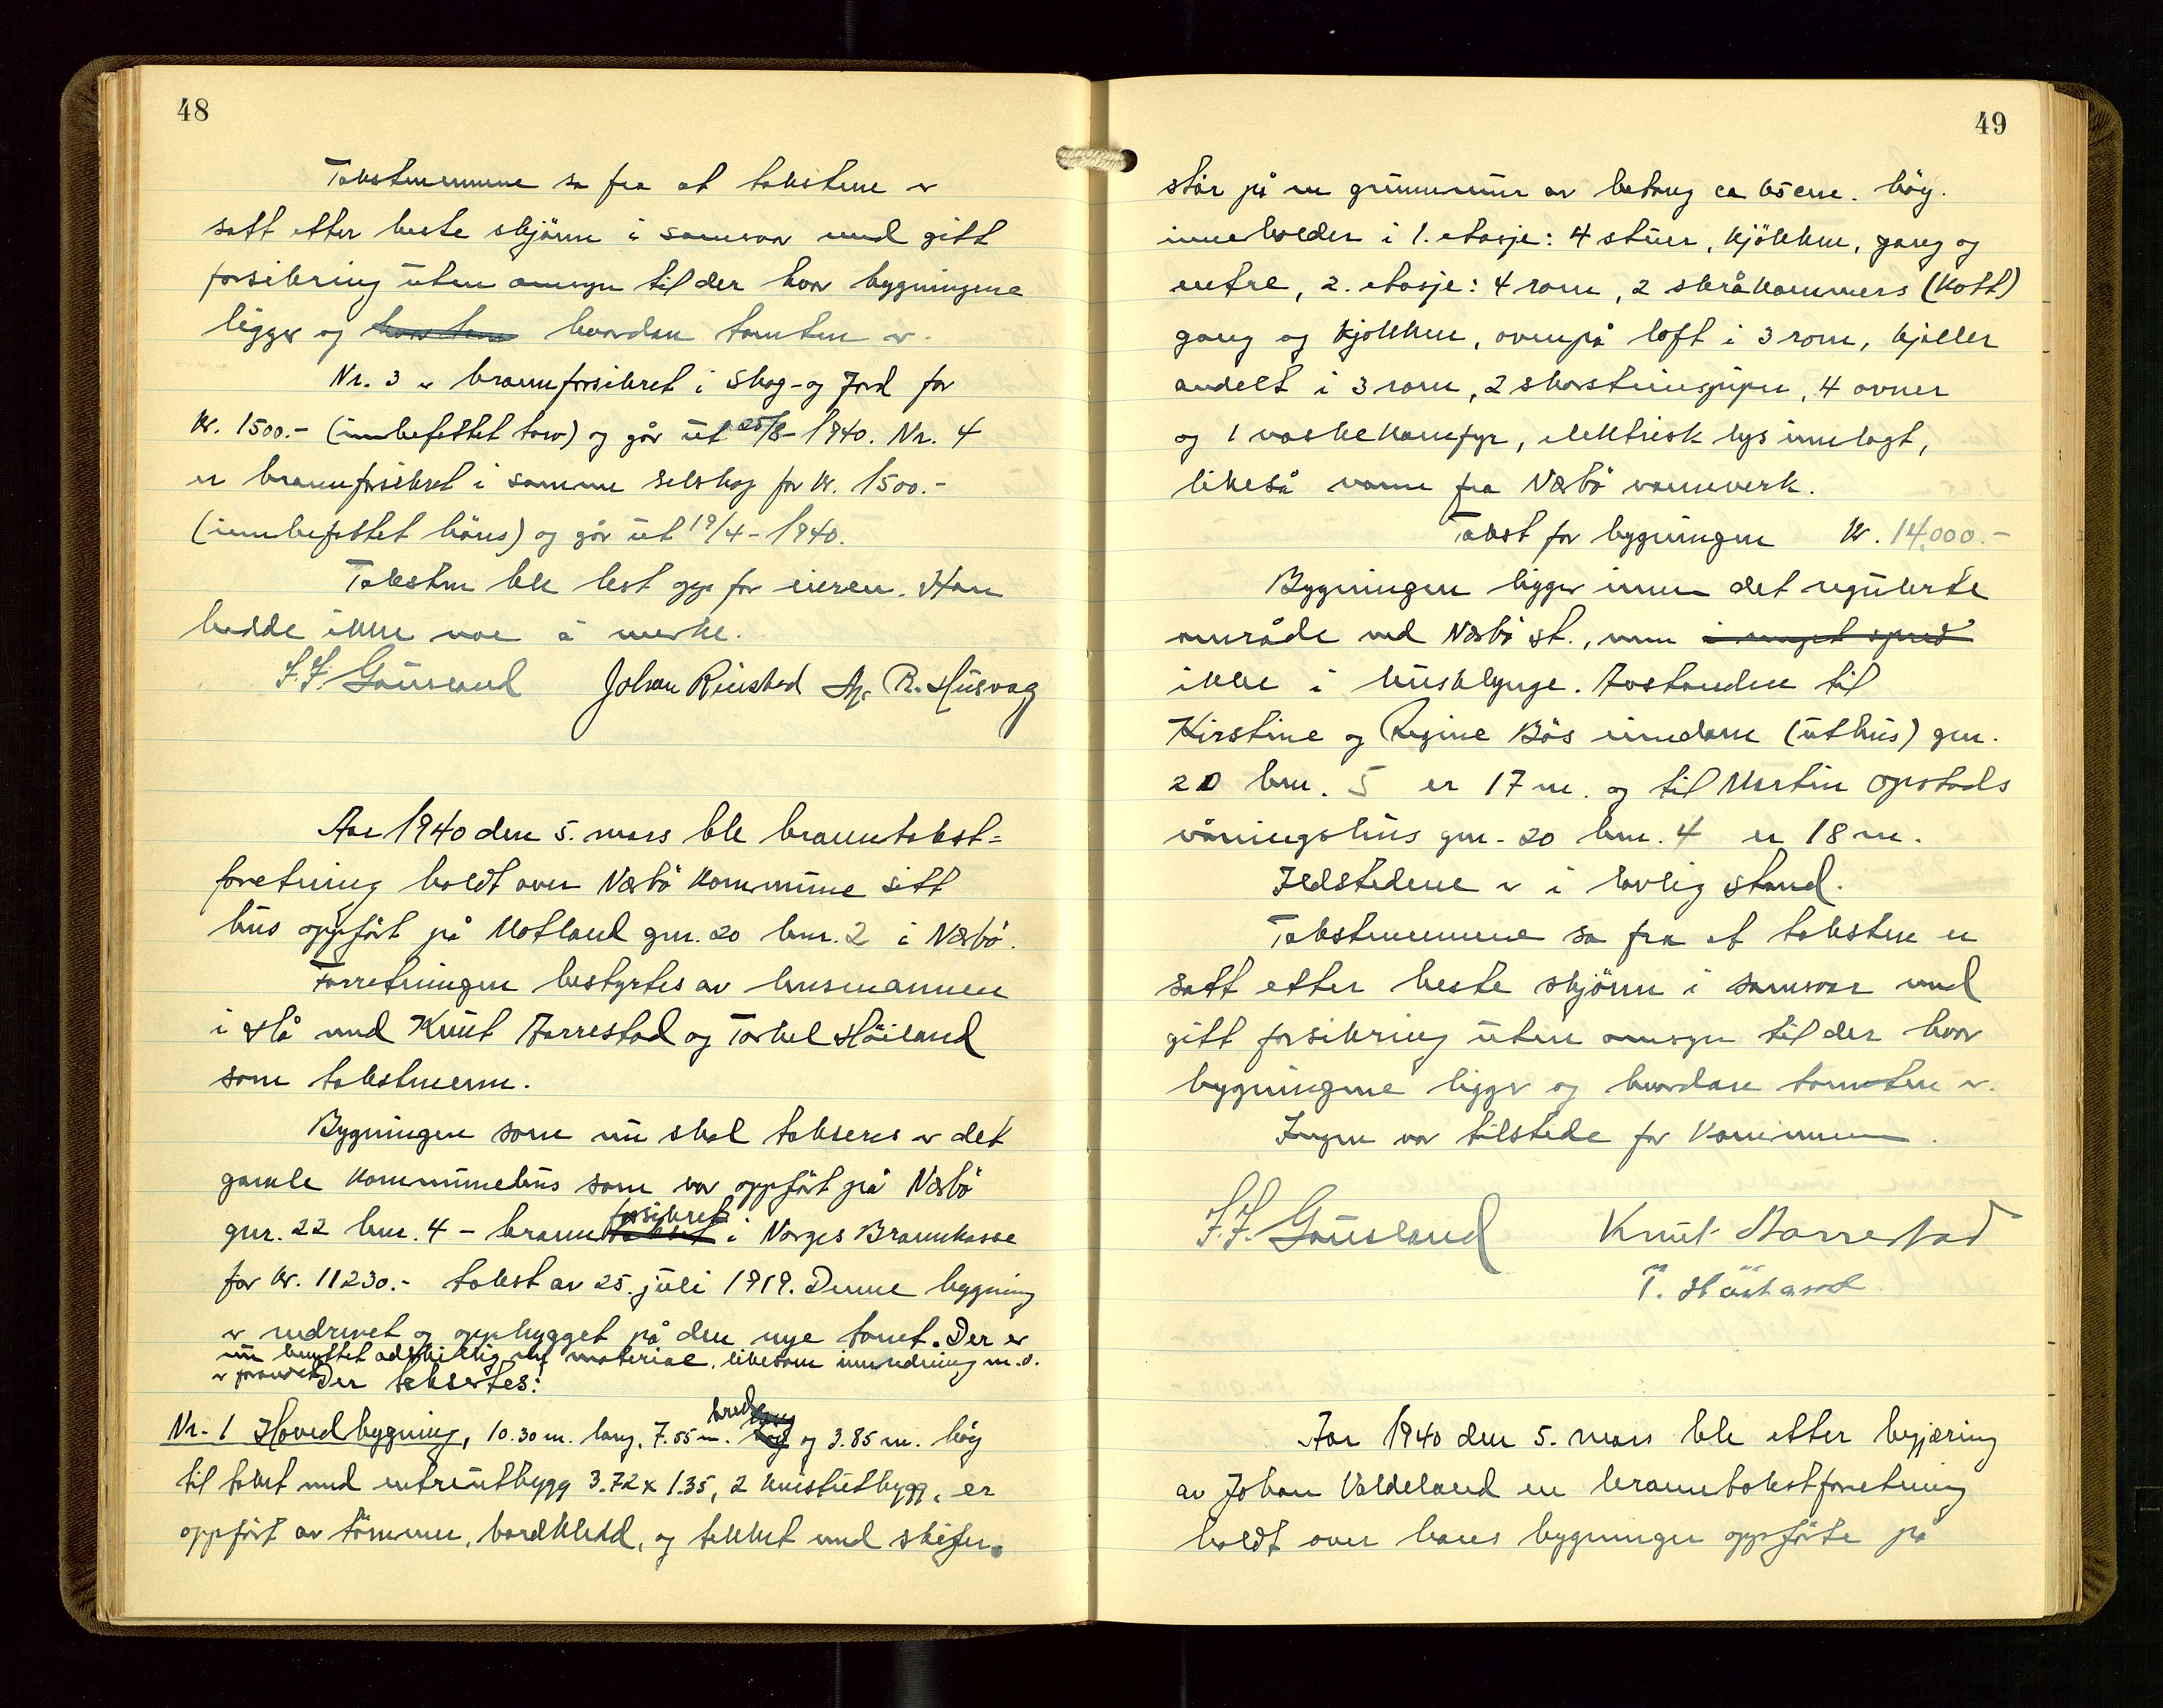 48
Takstmennene sa fra at takstene er
satt etter beste skjönn i samsvar med gitt
forsikring uten omsyn til der hvor bygningene
ligger og hvordan tomten er.
Nr. 3 er brannforsikret i Skog- og Jord for
kr. 1500.- (innbefattet torv) og går ut 25/8-1940. Nr. 4
er brannforsikret i samme selskap for kr. 1500.-
(innbefattet höns) og går ut 19/4-1940.
Taksten ble lest opp for eieren. Han
hadde ikke noe å merke.
J. J. Gausland Johan Rinstad R. Husvag
Aar 1940 den 5. mars ble branntakst=
foretning holdt over Nærbö kommune sitt
hus oppfört på Motland gnr. 20 bnr. 2 i Nærbö.
Forretningen bestyrtes av lensmannen
i Hå med Knut Aarrestad og Torkel Höiland
som takstmenn.
Bygningen som nu skal takseres er det
gamle kommunehus som var oppfört på Nærbö
gnr. 22 bnr. 4 - brannforsikret i Norges Brannkasse
for kr. 11230.- takst av 25. juli 1919. Denne bygning
er nedrevet og oppbygget på den nye tomt. Der er
nu benyttet adskillig nytt materiale, likesom innredning m.v.
er forandret. Der taksertes:
Nr. 1 Hovedbygning, 10.30 m. lang, 7.55 m. bred og 3.85 m. hög
til taket med entreutbygg 3.72 x 1.35, 2 kvistutbygg, er
oppfört av tömmer, bordkledd, og tekket med skifer.
49
står på en grunnmur av betong ca 65 cm. höy.
inneholder i 1. etasje: 4 stuer, kjökken, gang og
entre, 2. etasje: 4 rom, 2 skråkammers (kott)
gang og kjökken, ovenpå loft i 3 rom, kjeller
avdelt i 3 rom, 2 skorsteinspiper, 4 ovner
og 1 vaskekomfyr, elektrisk lys innlagt,
likeså vann fra Nærbö vannverk.
Takst for bygningen kr. 14.000.-
Bygningen ligger innen det regulerte
område ved Nærbö st., men i meget spred
ikke i husklynge. Avstanden til
Kirstine og Regine Bös eiendom (uthus) gnr.
20 bnr. 5 er 17 m. og til Martin Opstads
våningshus gnr. 20 bnr. 4 er 18 m.
Ildstedene er i lovlig stand.
Takstmennene sa fra at taksten er
satt etter beste skjönn i samsvar med
gitt forsikring uten omsyn til der hvor
bygningene ligger og hvordan tomten er.
Ingen var tilstede for kommunen.
J. J. Gausland Knut Aarrestad
T. Höiland
Aar 1940 den 5. mars ble etter begjæring
av Johan Valdeland en branntakstforetning
holdt over hans bygninger oppförte på